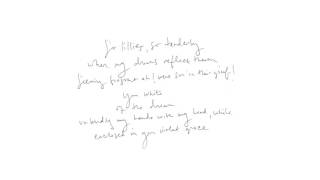 So lillies, so tenderly
when my drums reflect them
seeming fragrant oh! were son in their grief!
You white
of the dream
my hands with my head, while
enclosed in your violet space